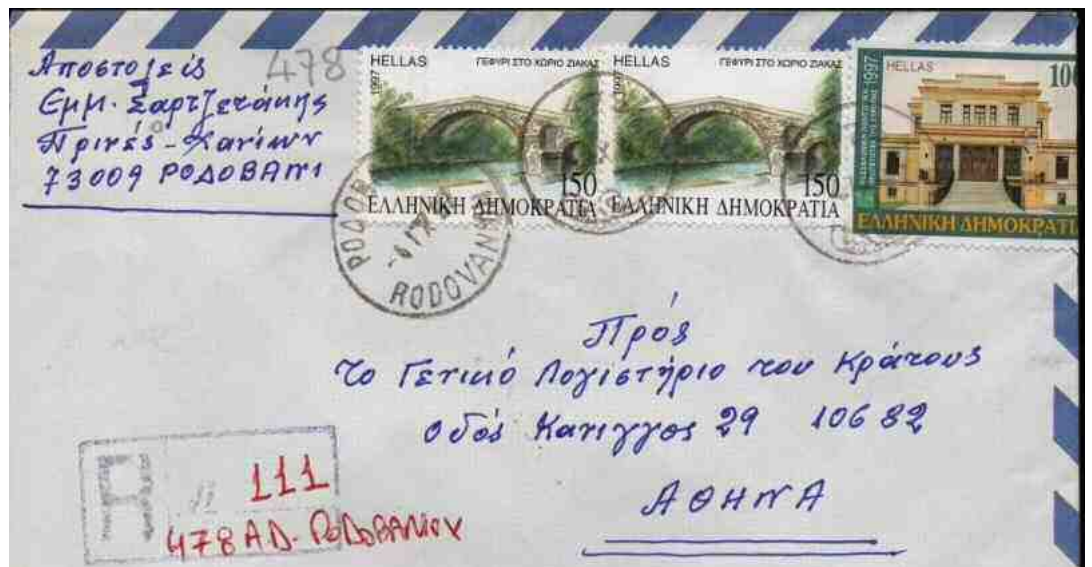 Αποστολείς 478
Εμμ. Σαρτζετάκης
Πρινές - Χανίων
73009 ΡΟΔΟΒΑΝΙ
HELLAS ΓΕΦΥΡΙ ΣΤΟ ΧΩΡΙΟ ΖΙΑΚΑΣ
1997
150
ΕΛΛΗΝΙΚΗ ΔΗΜΟΚΡΑΤΙΑ
HELLAS ΓΕΦΥΡΙ ΣΤΟ ΧΩΡΙΟ ΖΙΑΚΑΣ
1997
150
ΕΛΛΗΝΙΚΗ ΔΗΜΟΚΡΑΤΙΑ
HELLAS 100
1997
ΕΛΛΗΝΙΚΗ ΔΗΜΟΚΡΑΤΙΑ
RODOVANI
Πρός
το Γενικό Λογιστήριο του Κράτους
οδός Κανιγγος 29 10682
ΑΘΗΝΑ
R
111
478 ΑΔ. ΡΟΔΟΒΑΝΙΟΥ